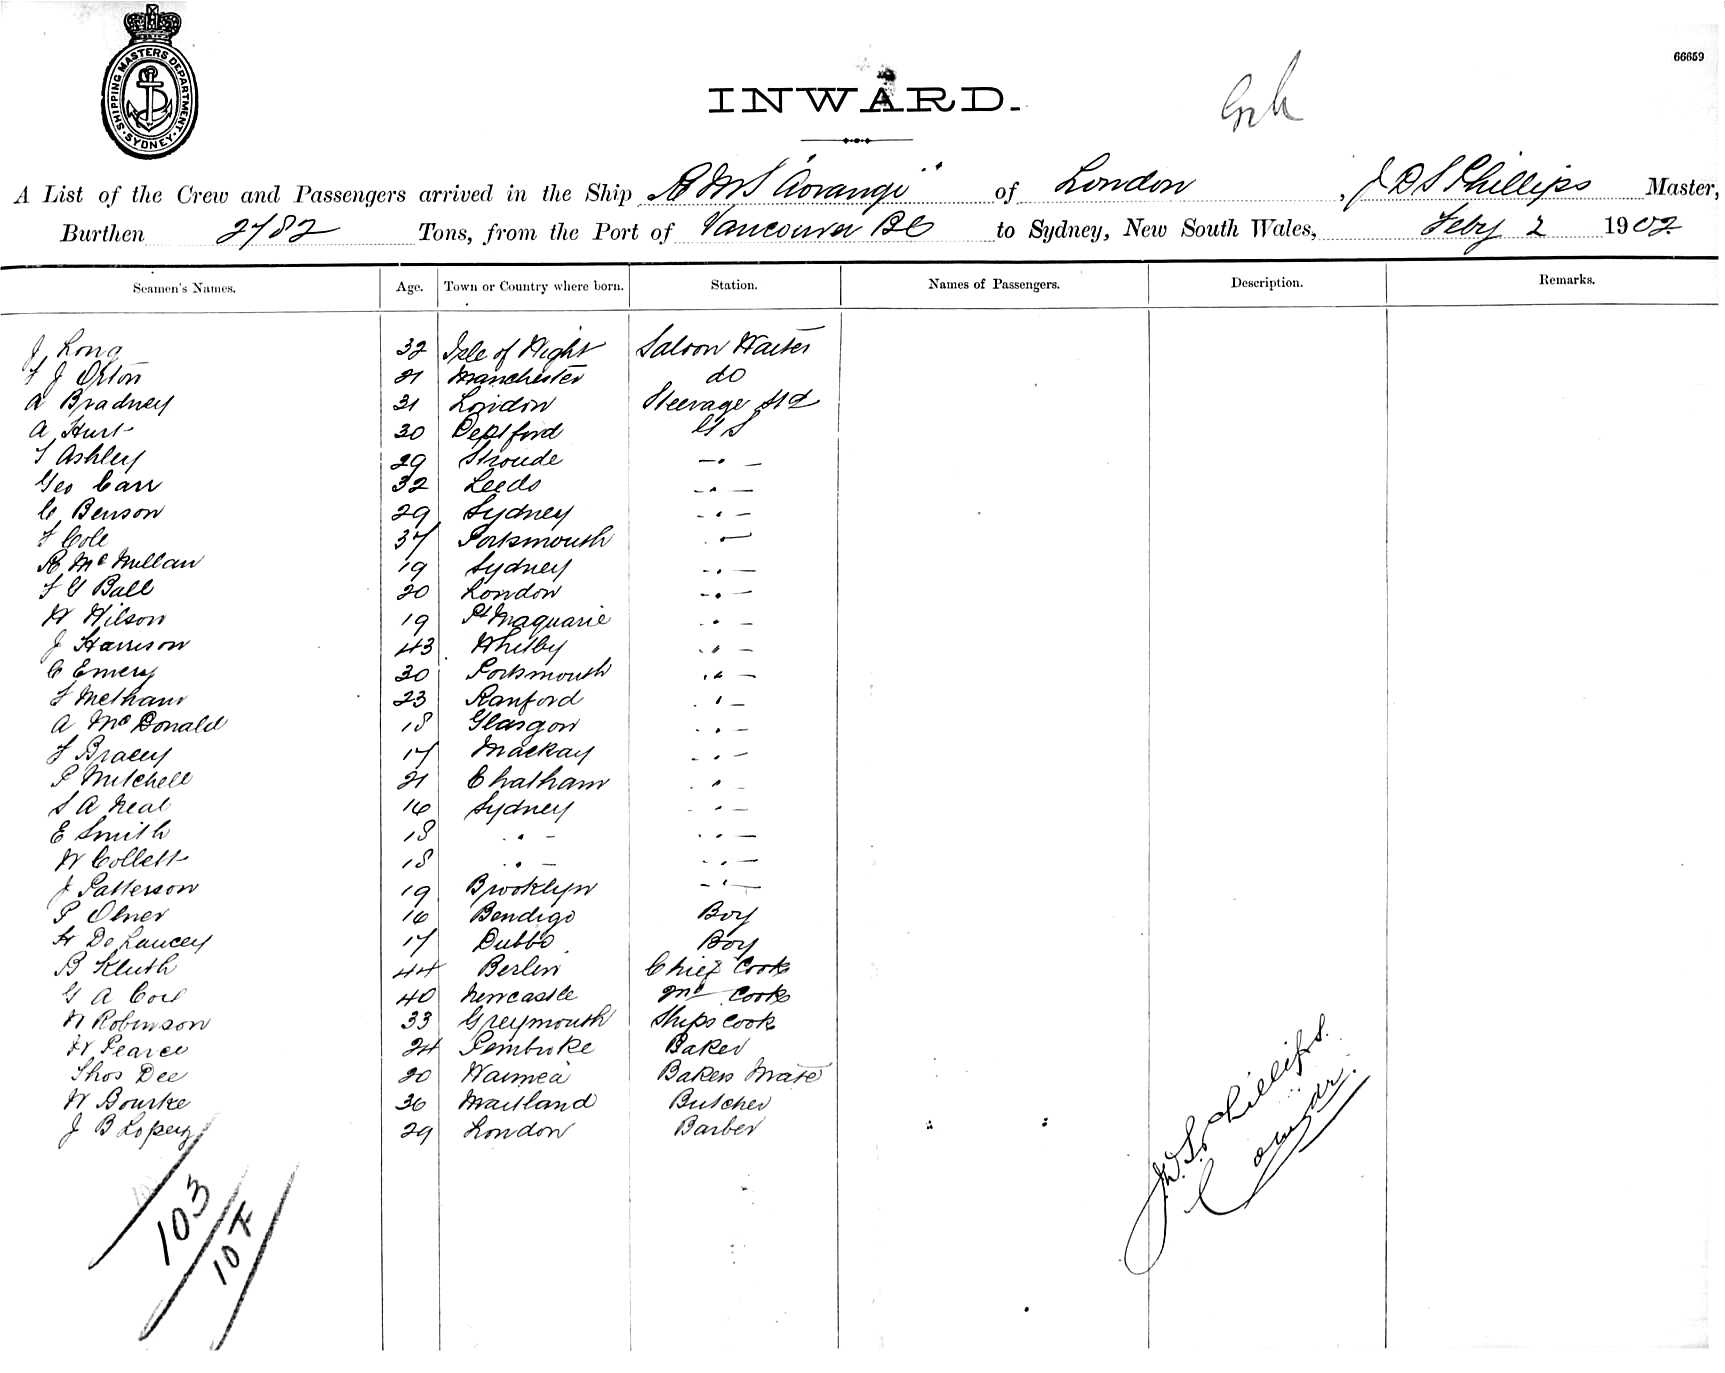 SHIPPING MASTERS DEPARTMENT · SYDNEY ·
66659
INWARD.
A List of the Crew and Passengers arrived in the Ship R M S "Aorangi" of London, J D S Phillips Master,
Burthen 2782 Tons, from the Port of Vancouver B C to Sydney, New South Wales, Feby 2 1902
Seamen's Names. Age. Town or Country where born. Station. Names of Passengers. Description. Remarks.
J Long 32 Isle of Wight Saloon Waiter
F J Orton 21 Manchester do
A Bradney 31 London Steerage Std
A Hurt 30 Deptford G S
T Ashley 29 Stroude - · -
Geo Carr 32 Leeds - · -
C Benson 29 Sydney - · -
F Cole 37 Portsmouth · -
R McMillan 19 Sydney - · -
F G Ball 20 London - · -
W Wilson 19 Pt Maquarie - · -
J Harrison 43 Whitby - · -
C Emery 30 Portsmouth - · -
F Metham 23 Ranford - · -
A McDonald 18 Glasgow - · -
F Bracey 17 Mackay - · -
P Mitchell 21 Chatham - · -
S A Neal 16 Sydney - · -
E Smith 18 - · - - · -
W Collett 18 - · - - · -
J Patterson 19 Brooklyn - · -
P Olner 16 Bendigo Boy
H De Lancey 17 Dubbo Boy
B Kluth 44 Berlin Chief Cook
G A 40 Newcastle Cook
W Robinson 33 Greymouth Ships Cook
W Pearce 24 Pembroke Baker
Thos Dee 20 Waimea Bakers Mate
W Bourke 36 Maitland Butcher
J B Lopez 29 London Barber
103
10 F
J. D. S. Phillips.
Comdr.